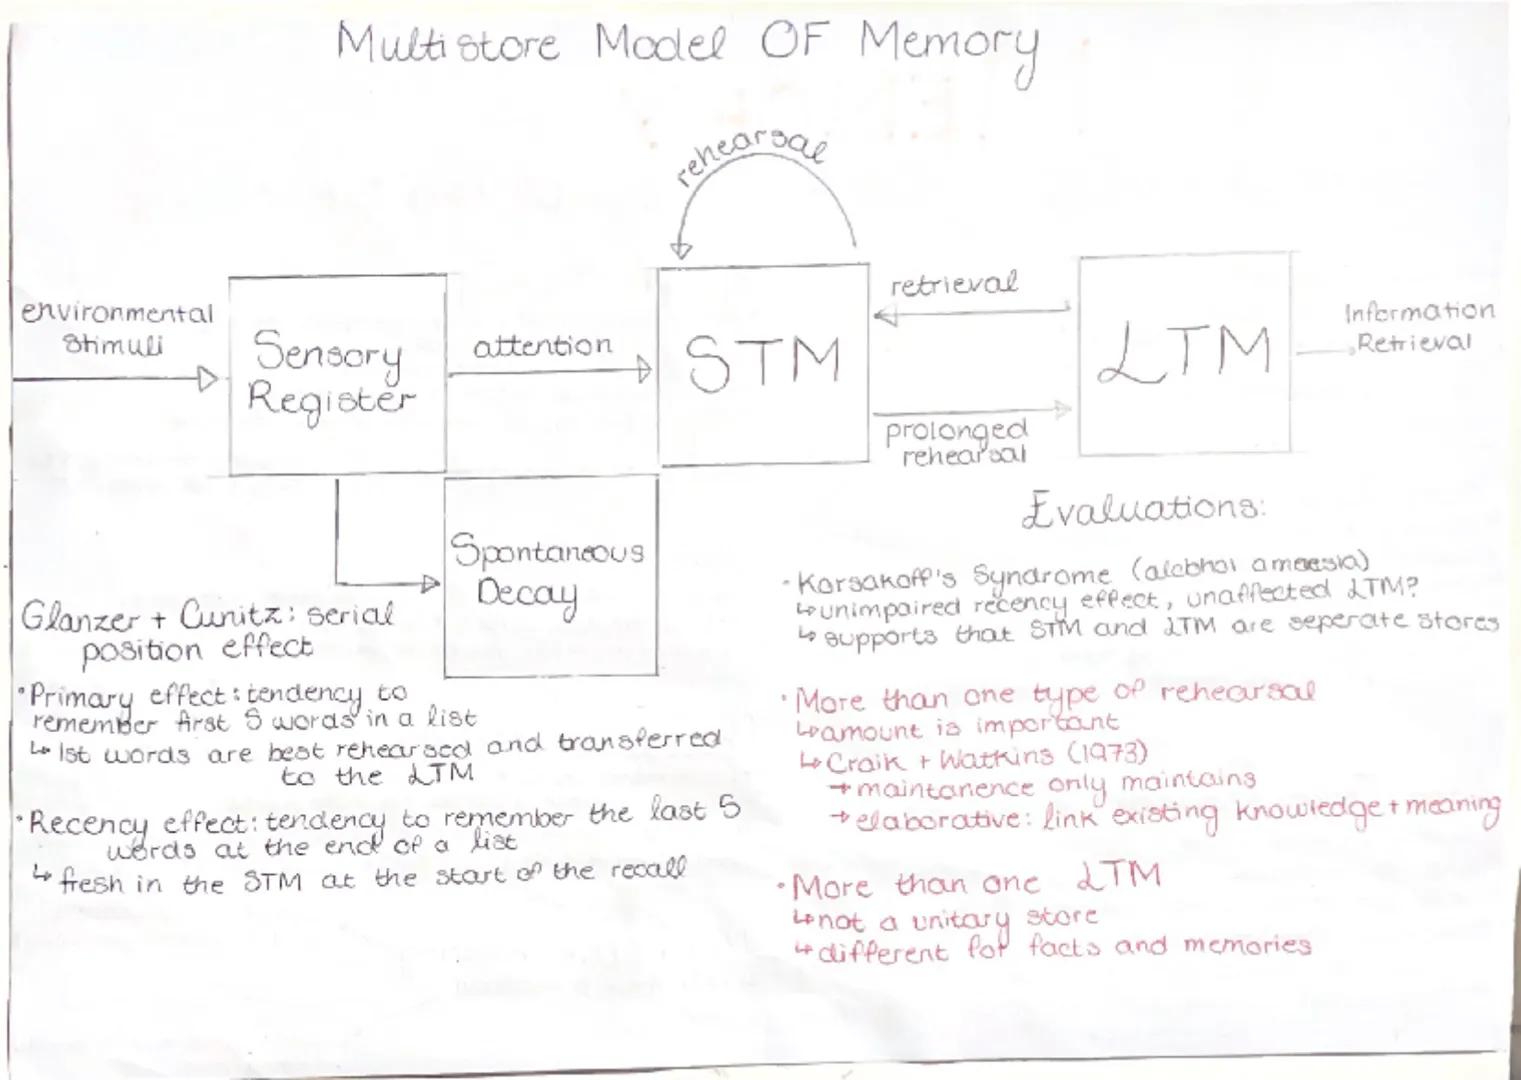 Multistore Model OF Memory
rehearsal
environmental
stimuli
Sensory
Register
attention
STM
retrieval
prolonged
rehearsal
LTM
Information
Retrieval
Spontaneous
Decay
Glanzer + Cunitz: serial
position effect
•Primary effect: tendency to
remember first 5 words in a list
↳ 1st words are best rehearsed and transferred
to the LTM
•Recency effect: tendency to remember the last 5
words at the end of a list
↳ fresh in the STM at the start of the recall
Evaluations:
•Korsakoff's Syndrome (alcohol amnesia)
↳unimpaired recency effect, unaffected LTM?
↳ supports that STM and LTM are seperate stores
•More than one type of rehearsal
↳amount is important
↳Craik + Watkins (1973)
→maintanence only maintains
→elaborative: link existing knowledge + meaning
•More than one LTM
↳not a unitary store
↳different for facts and memories